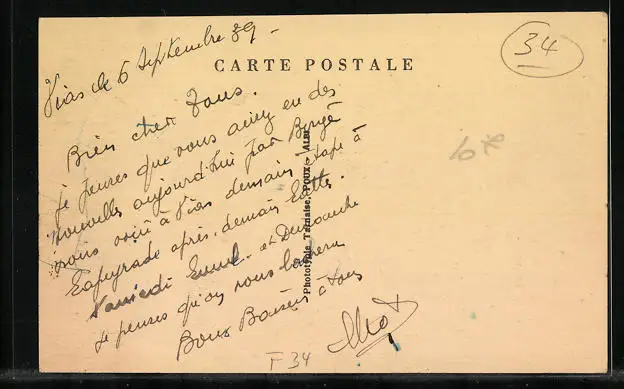 Vias le 6 Septembre 39 -
CARTE POSTALE
34
Bien cher Tous.
je penses que vous aurez eu des
nouvelles aujourd'hui par
nous voici à Vias demain étape à
après. demain
Samedi et Dimanche
je penses qu'on nous
Bons Baisers à tous
10*
F 34
Phototypie Tarnaise, POUX - ALBI